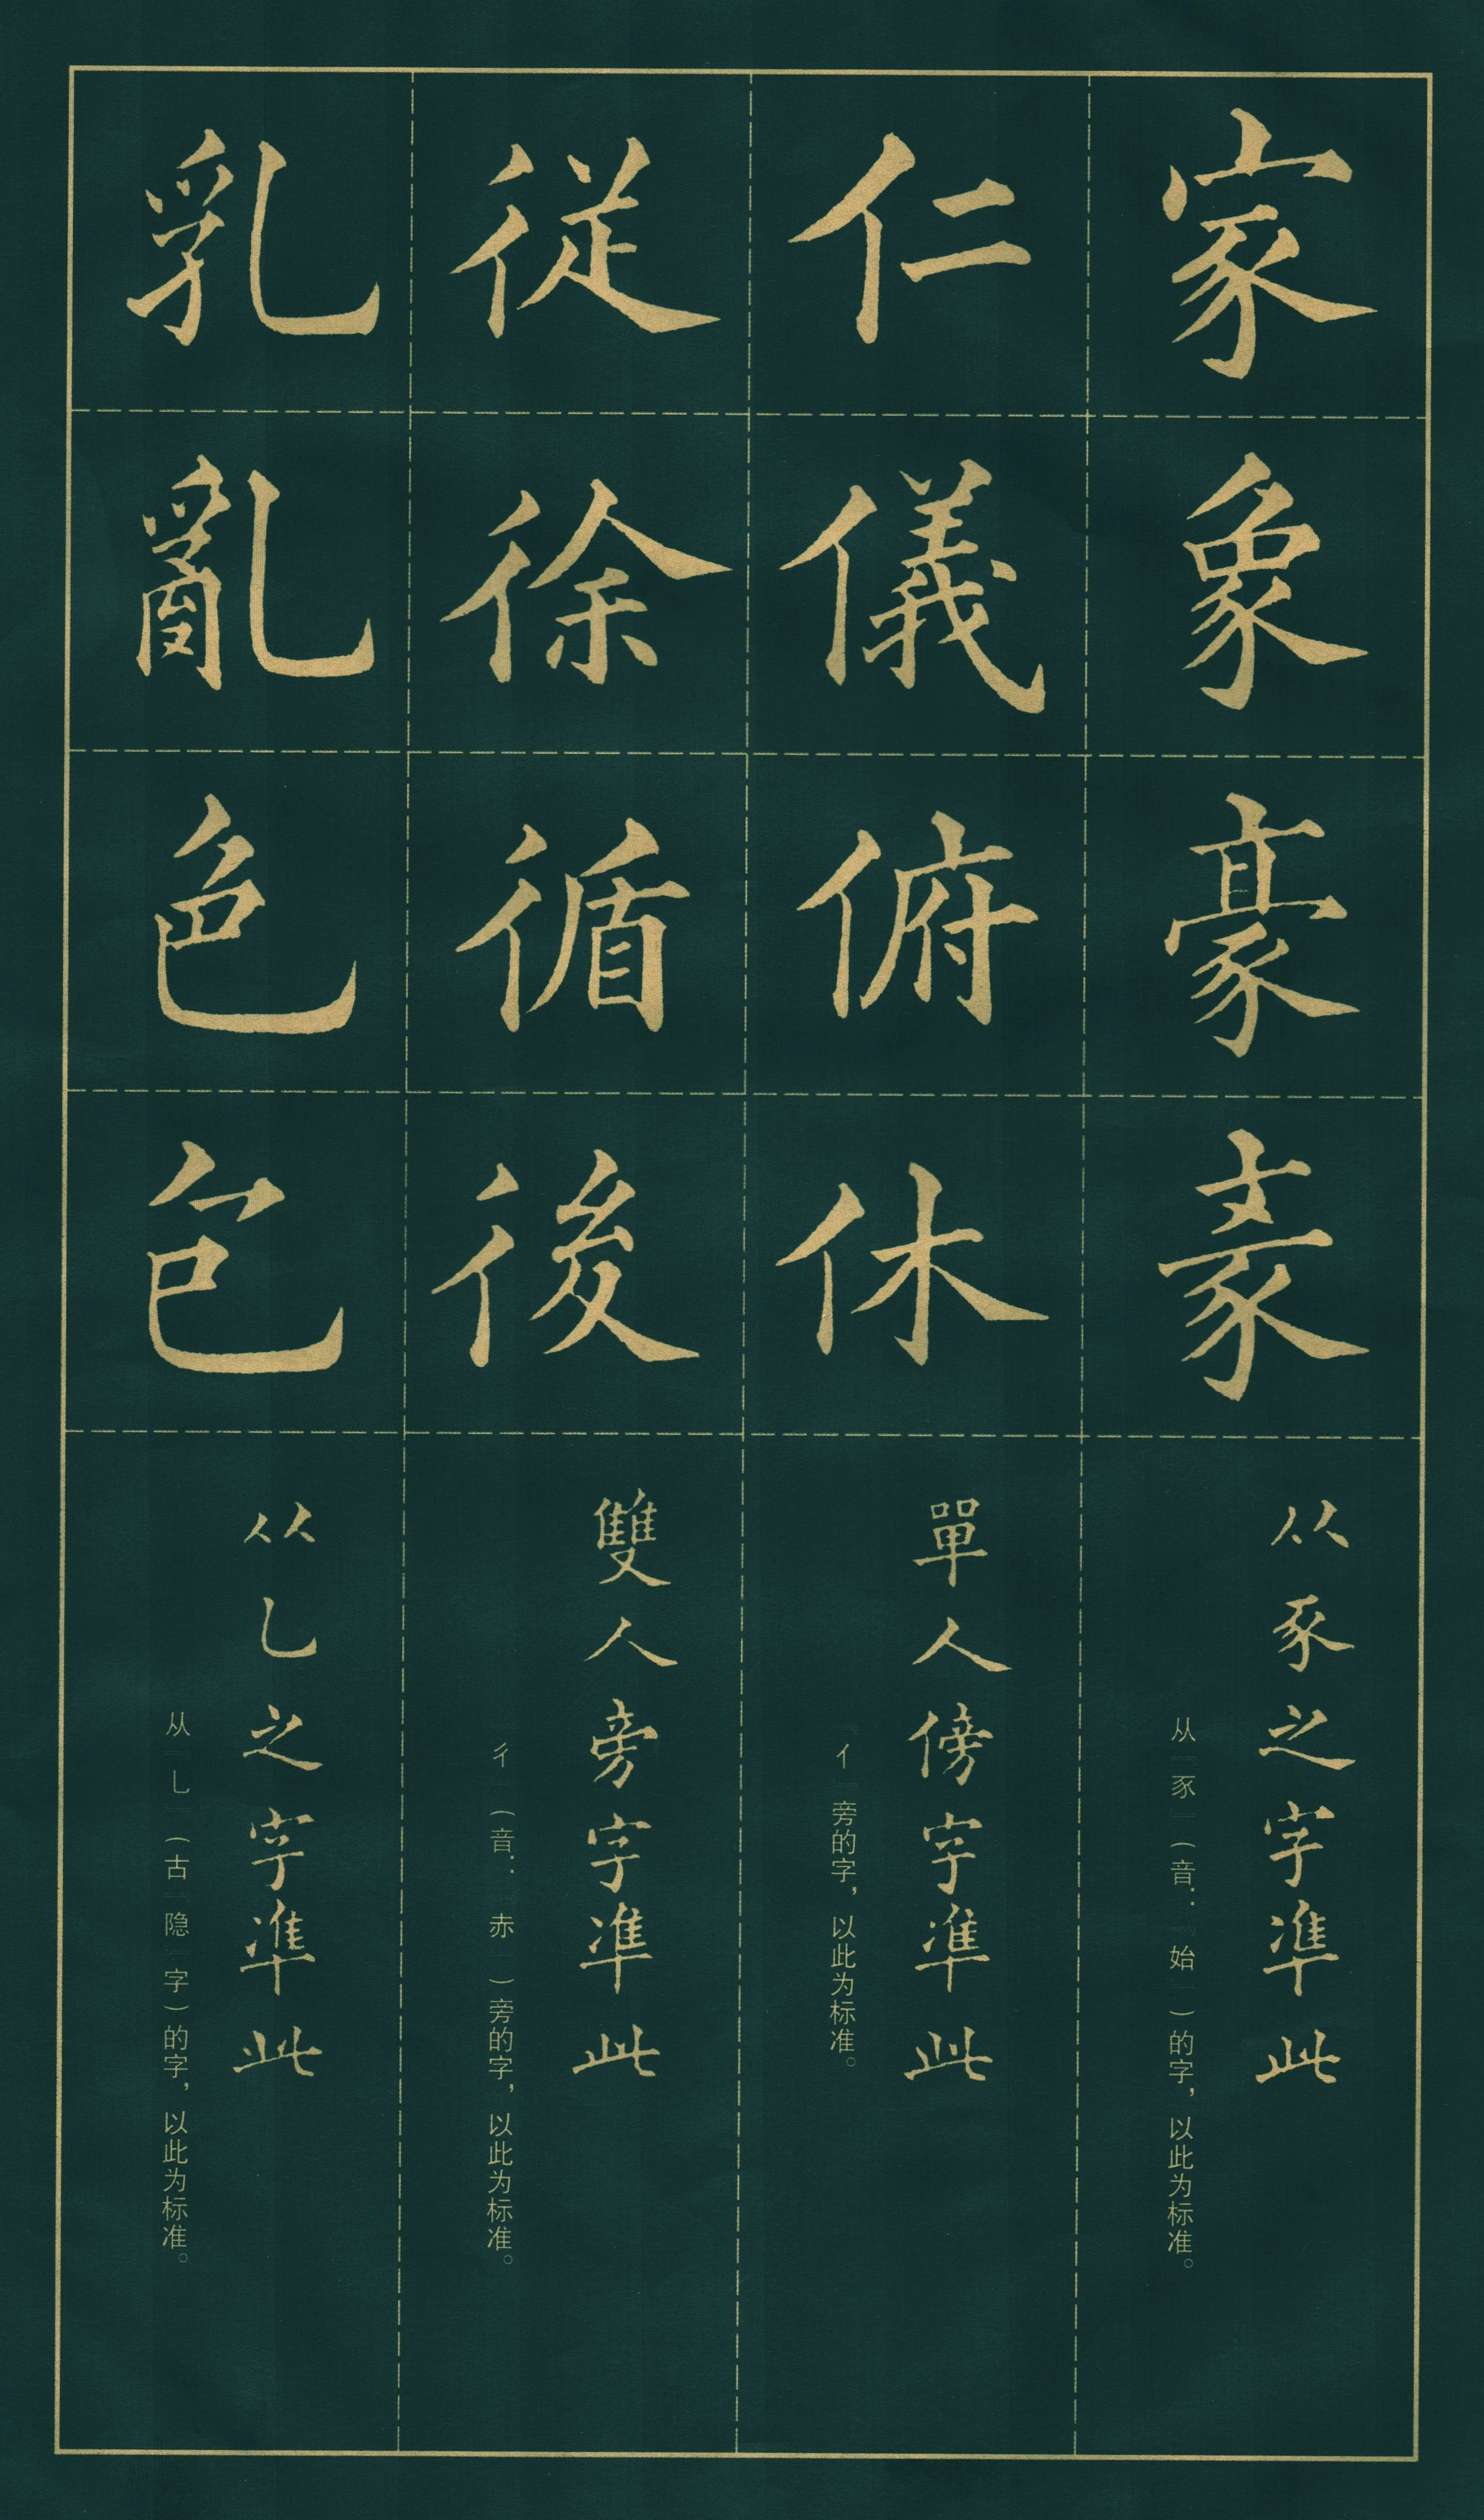 家象豪
从豕之字凖此
从豕（音：始）的字，以此为标准。
仁儀俯休
單人傍字凖此
亻旁的字，以此为标准。
従徐循後
雙人旁字凖此
彳（音：赤）旁的字，以此为标准。
乳亂色包
从乚之字凖此
从乚（古隐字）的字，以此为标准。